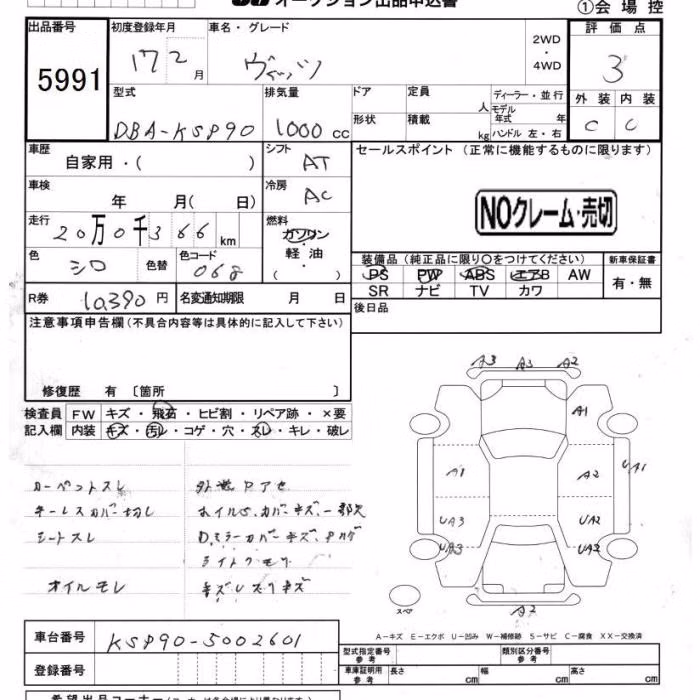 オークション出品申込書
①会場控
出品番号 初度登録年月 車名・グレード 評価点
5991 17 2月 ヴィッツ 2WD・4WD 3
型式 排気量 ドア 定員 人 ディーラー・並行 外装 内装
DBA-KSP90 1000cc 形状 積載 kg モデル年式 年 ハンドル 左・右 C C
車歴 自家用・( ) シフト AT セールスポイント (正常に機能するものに限ります)
車検 年 月( 日) 冷房 AC
NOクレーム・売切
走行 20万0千366km 燃料 ガソリン・軽油・( )
色 シロ 色替 色コード 068
装備品(純正品に限り○をつけてください) 新車保証書
PS PW ABS エアB AW 有・無
SR ナビ TV カワ
R券 10,390円 名変通知期限 月 日
後日品
注意事項申告欄(不具合内容等は具体的に記入して下さい)
修復歴 有〔箇所 〕
検査員記入欄 FW キズ・飛石・ヒビ割・リペア跡・×要
内装 キズ・汚レ・コゲ・穴・スレ・キレ・破レ
カーペットスレ
キーレスカバー切レ
シートスレ
オイルモレ
外装アセ
ホイルS.カバーキズ、一部欠
Dミラーカバーキズ、ハゲ
ライトクモリ
キズUズリキズ
A3 A3 A2
A1
A1 A2 UA1
UA3 UA2
UA3 UA2
スペア
A2
A-キズ E-エクボ U-凹み W-補修跡 S-サビ C-腐食 XX-交換済
車台番号 KSP90-5002601
型式指定番号 参考 類別区分番号 参考
登録番号
車庫証明用 参考 長さ cm 幅 cm 高さ cm
希望出品コーナー